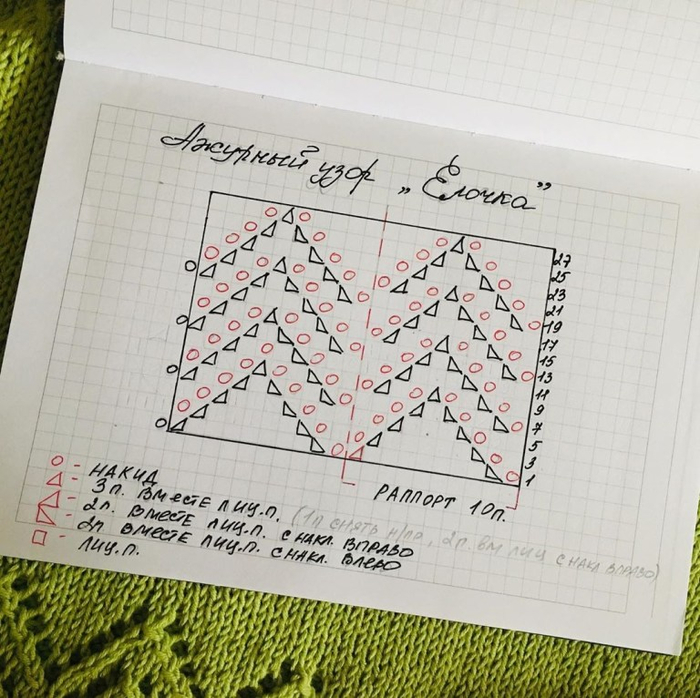 Ажурный узор „Ёлочка”
27
25
23
21
19
17
15
13
11
9
7
5
3
1
РАППОРТ 10п.
- НАКИД
- 3п. ВМЕСТЕ ЛИЦ.П. (1п СНЯТЬ Н/ПР, 2п. ВМ ЛИЦ С НАКЛ ВПРАВО)
- 2п. ВМЕСТЕ ЛИЦ.П. С НАКЛ. ВПРАВО
- 2п ВМЕСТЕ ЛИЦ.П. С НАКЛ. ВЛЕВО
- ЛИЦ.П.